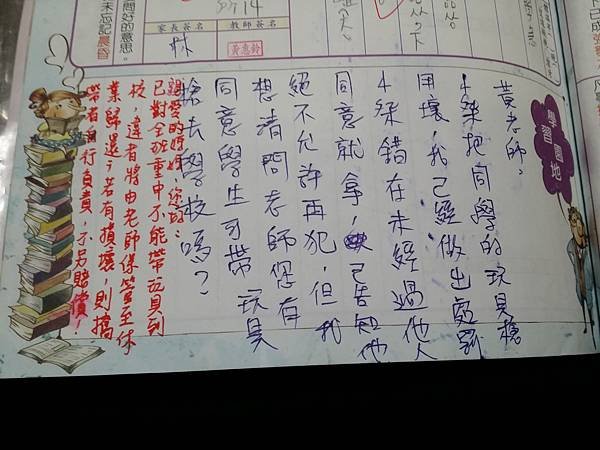 未忘記晨昏
好的意思。
家長簽名
教師簽名
林
黃惠鈴
學習園地
黃老師,
把同學的玩具槍
用壞,我已經做出處罰
錯在未經過他人
同意就拿,已告知他
絕不允許再犯,但我
想請問老師您有
同意學生可帶玩具
槍去學校嗎?
親愛的媽媽,您好:
已對全班重申不能帶玩具到
校,違者將由老師保管至休
業歸還,若有損壞,則攜
帶者自行負責,不另賠償!